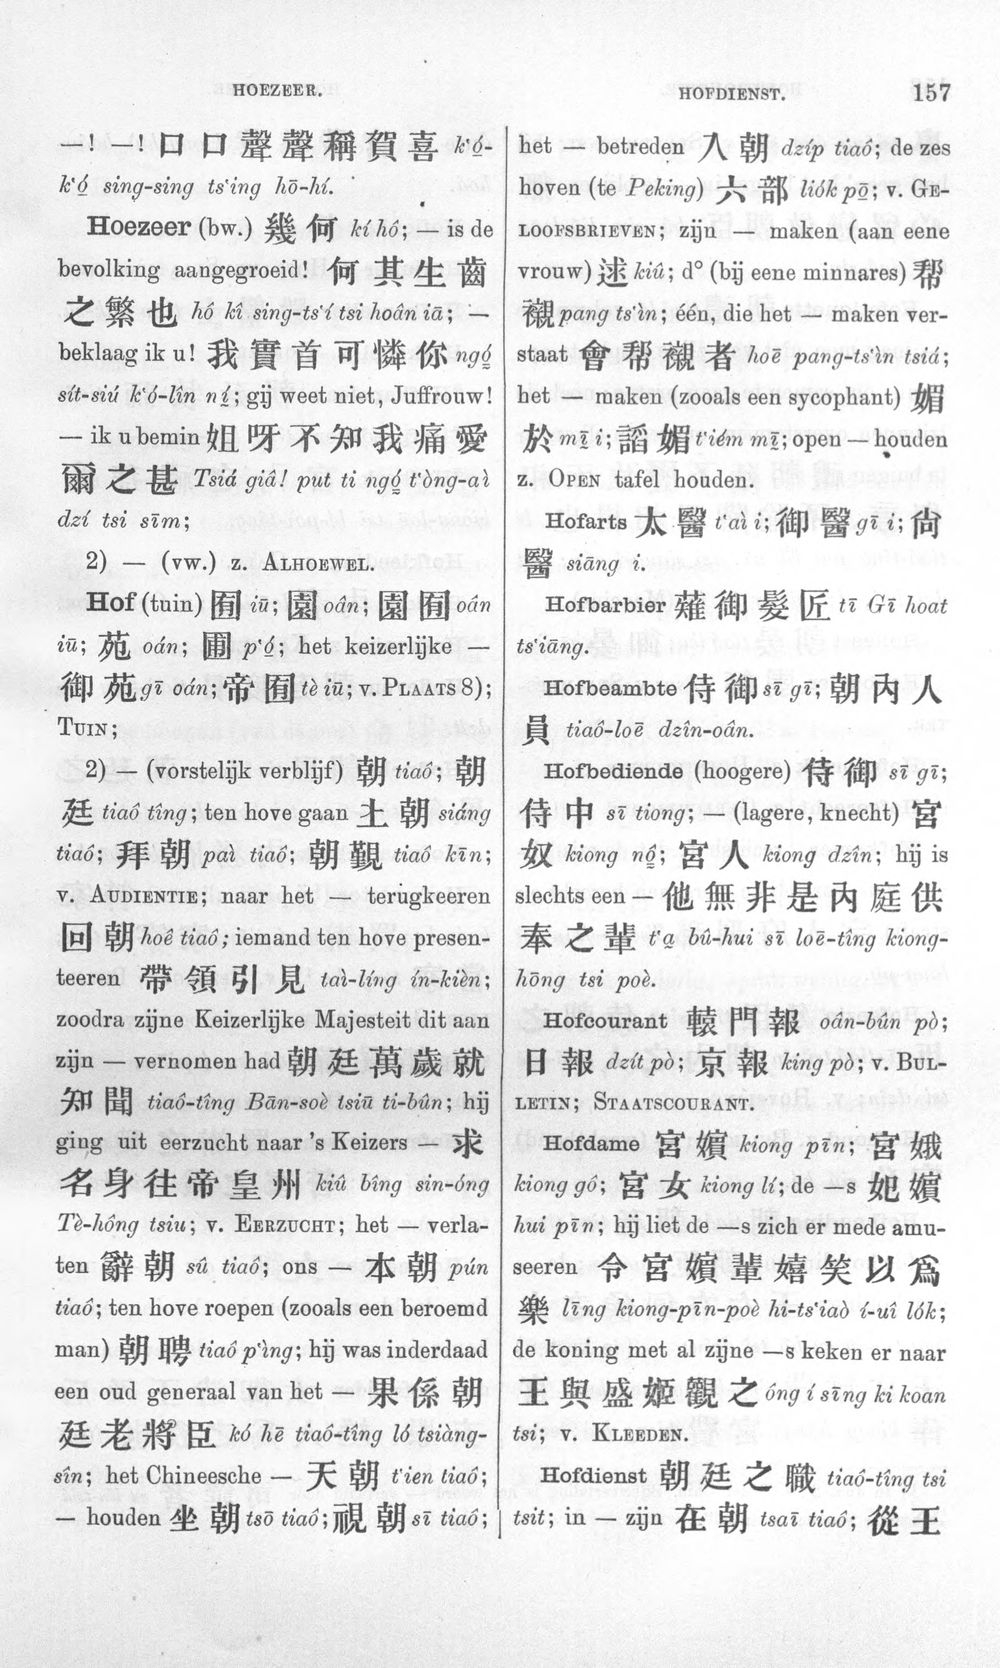 HOEZEER.
HOFDIENST.
157
—! —! 口 口 聲 聲 稱 賀 喜 k‘ó̤-
k‘ó̤ sing-sing ts‘ing hō-hí.
Hoezeer (bw.) 幾 何 kí hô; — is de
bevolking aangegroeid! 何 其 生 齒
之 繁 也 hó kî sing-ts‘í tsi hoân iā; —
beklaag ik u! 我 實 首 可 憐 你 ngó̤
sít-siú k‘ó-lîn ní̤; gij weet niet, Juffrouw!
— ik u bemin 姐 呀 不 知 我 痛 愛
爾 之 甚 Tsiá giâ! put ti ngó̤ t‘òng-aì
dzí tsi sīm;
2) — (vw.) z. Alhoewel.
Hof (tuin) 囿 iū; 園 oân; 園 囿 oán
iū; 苑 oán; 圃 p‘ó̤; het keizerlijke —
御 苑 gī oán; 帝 囿 tè iū; v. Plaats 8);
Tuin;
2) — (vorstelijk verblijf) 朝 tiaô; 朝
廷 tiaô tîng; ten hove gaan 上 朝 siáng
tiaô; 拜 朝 paì tiaô; 朝 覲 tiaô kīn;
v. Audientie; naar het — terugkeeren
回 朝 hoê tiaô; iemand ten hove presen-
teeren 帶 領 引 見 taì-líng ín-kièn;
zoodra zijne Keizerlijke Majesteit dit aan
zijn — vernomen had 朝 廷 萬 歲 就
知 聞 tiaô-tîng Bān-soè tsiū ti-bûn; hij
ging uit eerzucht naar 's Keizers — 求
名 身 往 帝 皇 州 kiû bîng sin-óng
Tè-hông tsiu; v. Eerzucht; het — verla-
ten 辭 朝 sû tiaô; ons — 本 朝 pún
tiaô; ten hove roepen (zooals een beroemd
man) 朝 聘 tiaô p‘ìng; hij was inderdaad
een oud generaal van het — 果 係 朝
廷 老 將 臣 kó hē tiaô-tîng ló tsiàng-
sîn; het Chineesche — 天 朝 t‘ien tiaô;
— houden 坐 朝 tsō tiaô; 視 朝 sī tiaô;
het — betreden 入 朝 dzíp tiaô; de zes
hoven (te Peking) 六 部 liók pō̤; v. Ge-
loofsbrieven; zijn — maken (aan eene
vrouw) 逑 kiû; d° (bij eene minnares) 帮
襯 pang ts‘ìn; één, die het — maken ver-
staat 會 帮 襯 者 hoē pang-ts‘ìn tsiá;
het — maken (zooals een sycophant) 媚
於 mī̤ i; 謟 媚 t‘iém mī̤; open — houden
z. Open tafel houden.
Hofarts 太 醫 t‘aì i; 御 醫 gī i; 尙
醫 siāng i.
Hofbarbier 薙 御 髮 匠 tī Gī hoat
ts‘iāng.
Hofbeambte 侍 御 sī gī; 朝 內 人
員 tiaô-loē dzîn-oân.
Hofbediende (hoogere) 侍 御 sī gī;
侍 中 sī tiong; — (lagere, knecht) 宮
奴 kiong nô̤; 宮 人 kiong dzîn; hij is
slechts een — 他 無 非 是 內 庭 供
奉 之 輩 t‘a̤ bû-hui sī loē-tîng kiong-
hōng tsi poè.
Hofcourant 轅 門 報 oân-bûn pò;
日 報 dzít pò; 京 報 king pò; v. Bul-
letin; Staatscourant.
Hofdame 宮 嬪 kiong pīn; 宮 娥
kiong gô; 宮 女 kiong lí; de —s 妃 嬪
hui pīn; hij liet de —s zich er mede amu-
seeren 令 宮 嬪 輩 嬉 笑 以 爲
樂 līng kiong-pīn-poè hi-ts‘iaò í-uî lók;
de koning met al zijne —s keken er naar
王 與 盛 姬 觀 之 óng í sīng ki koan
tsi; v. Kleeden.
Hofdienst 朝 廷 之 職 tiaô-tîng tsi
tsit; in — zijn 在 朝 tsaī tiaô; 從 王